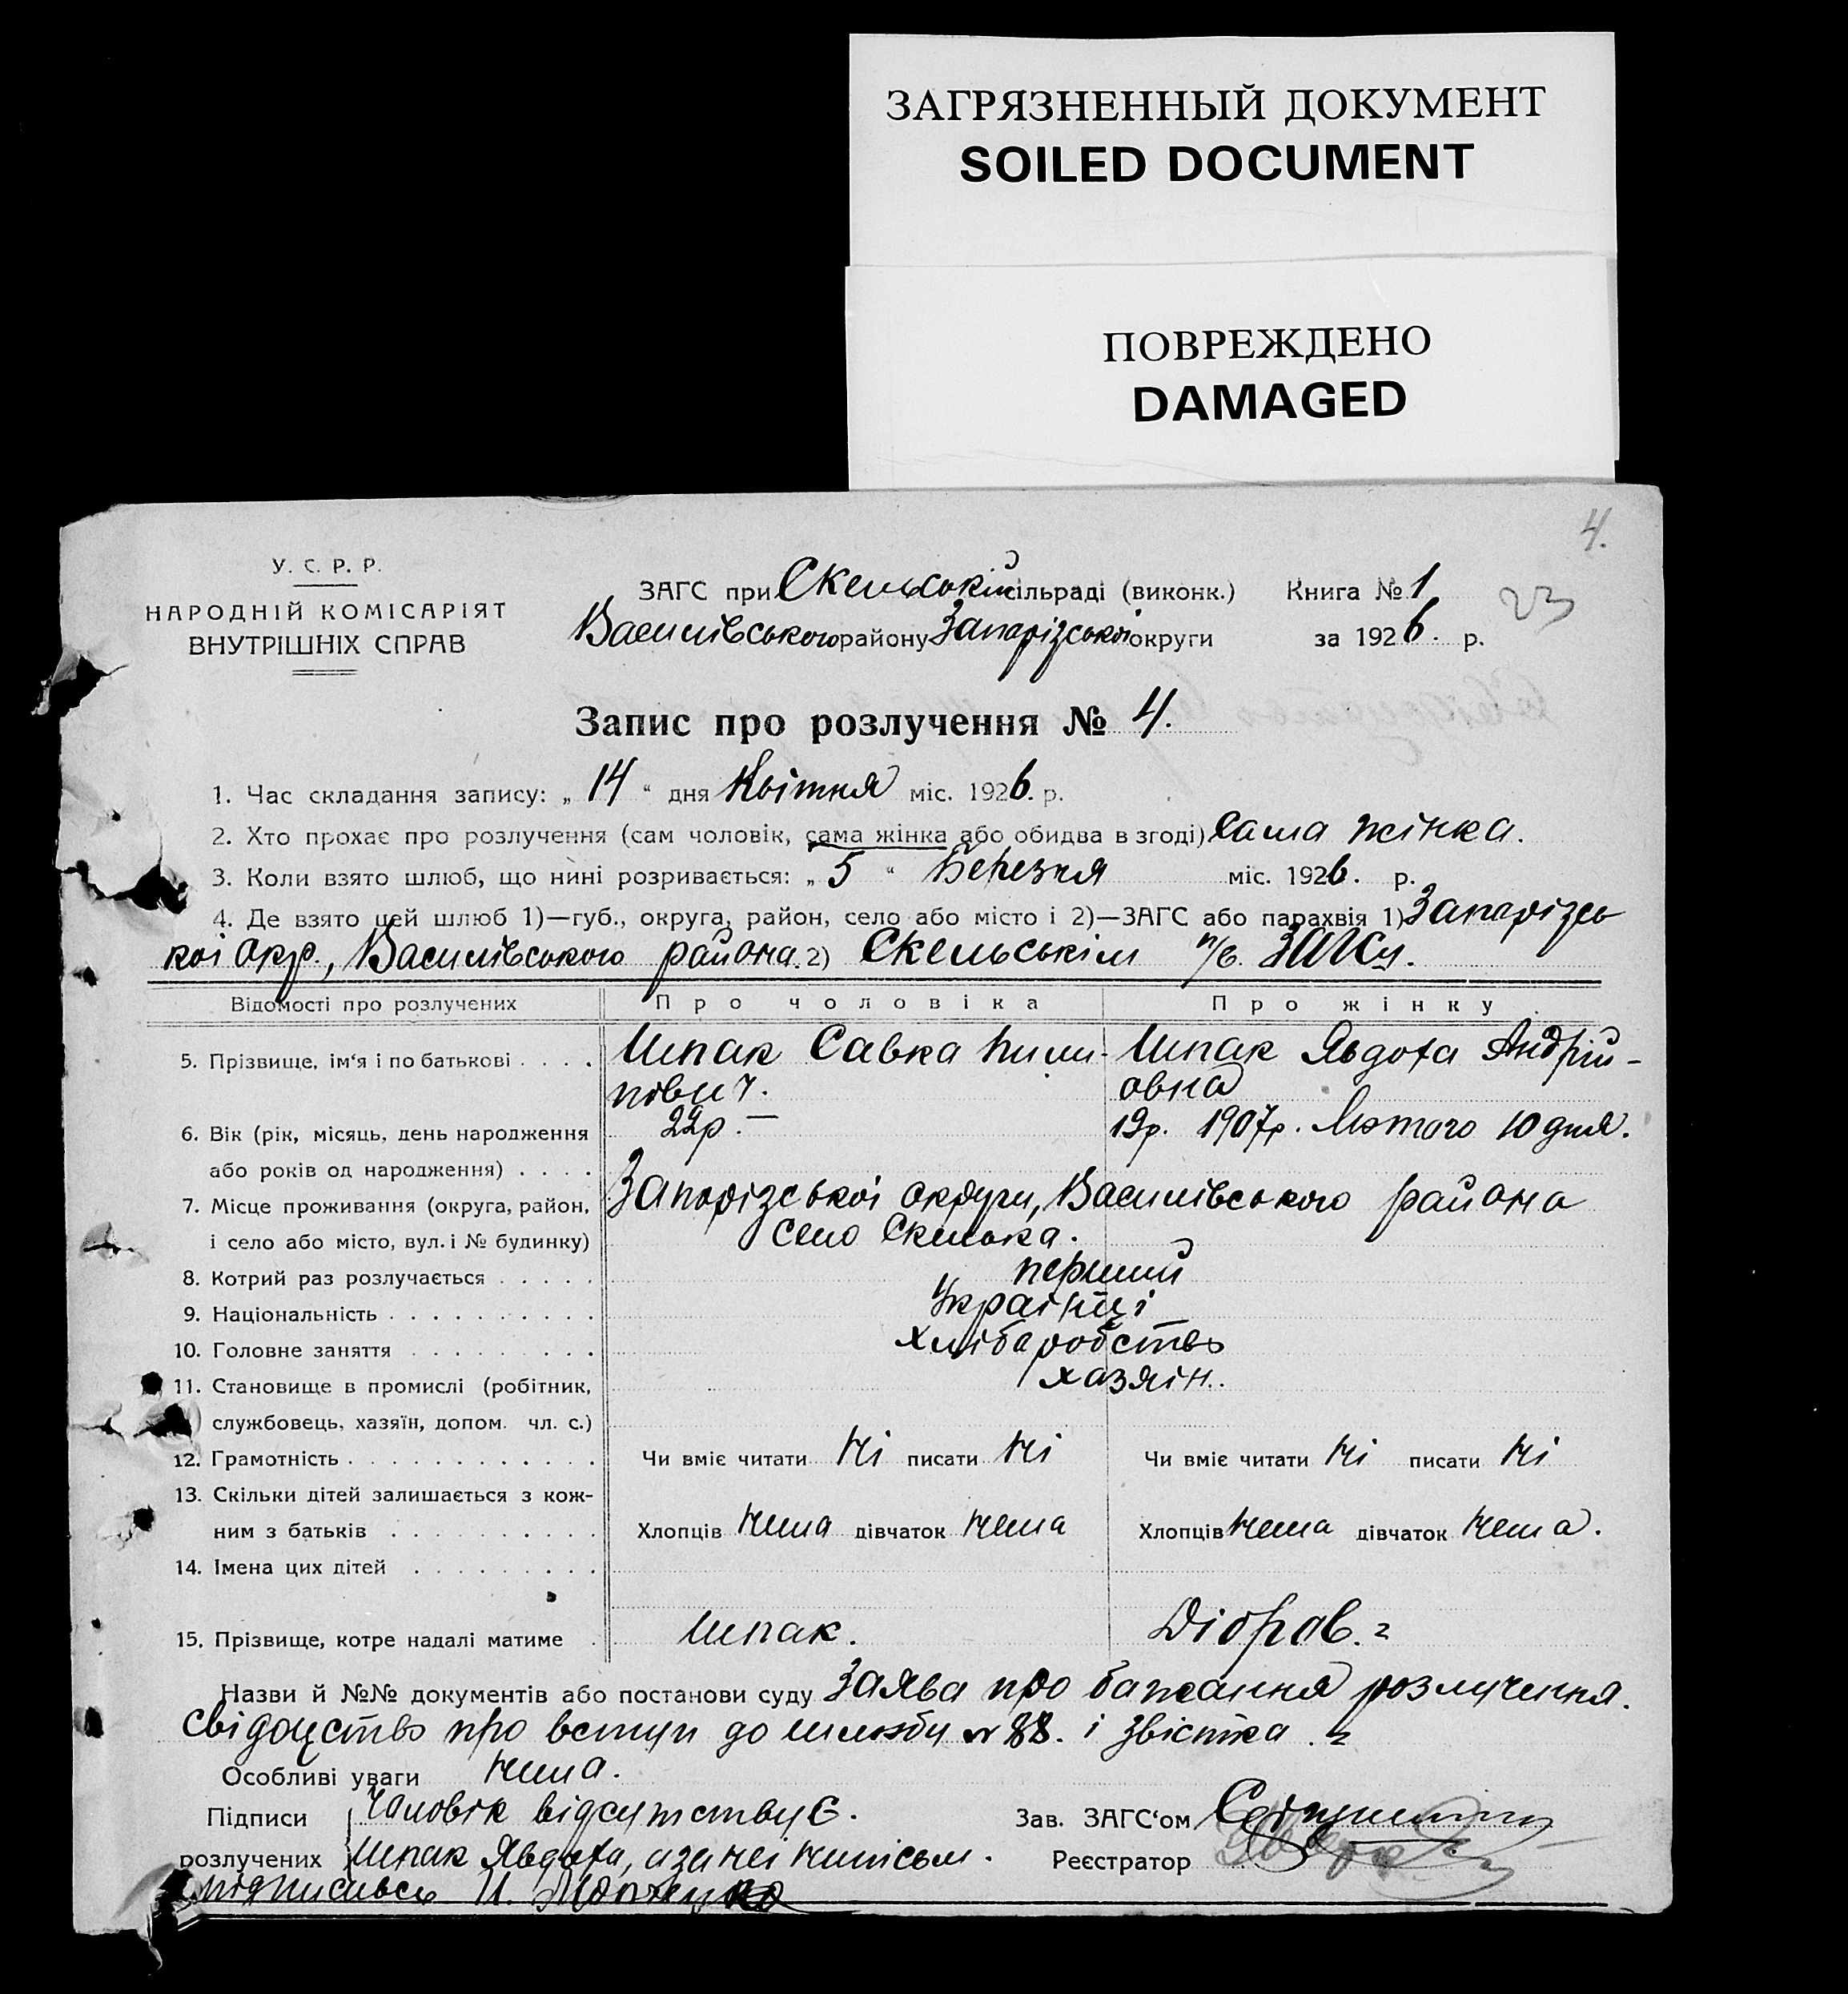 ЗАГРЯЗНЕННЫЙ ДОКУМЕНТ
SOILED DOCUMENT
ПОВРЕЖДЕНО
DAMAGED
4.
У. С. Р. Р.
НАРОДНІЙ КОМІСАРІЯТ
ВНУТРІШНІХ СПРАВ
ЗАГС при Скельській сільраді (виконк.) Книга № 1
23
Василівського району Запорізської округи за 1926. р.
Запис про розлучення № 4.
1. Час складання запису: „ 14 “ дня Квітня міс. 1926. р.
2. Хто прохає про розлучення (сам чоловік, сама жінка або обидва в згоді) Сама жінка.
3. Коли взято шлюб, що нині розривається: „ 5 “ Березня міс. 1926. р.
4. Де взято цей шлюб 1)—губ., округа, район, село або місто і 2)—ЗАГС або парахвія 1) Запорізсь
кої окр., Василівського района. 2) Скельськім п/в. ЗАГСу.
Відомості про розлучених Про чоловіка Про жінку
5. Прізвище, ім‘я і по батькові . . . . Шпак Савка Пили- Шпак Явдоха Андрій-
пович. овна
6. Вік (рік, місяць, день народження 22р.— 19р. 1907р. Лютого 10 дня.
або років од народження) . . . .
7. Місце проживання (округа, район, Запорізської округи, Василівського района
і село або місто, вул. і № будинку) село Скелька.
8. Котрий раз розлучається . . . . . перший
9. Національність . . . . . . . . . . Українці
10. Головне заняття . . . . . . . . . хліборобство
11. Становище в промислі (робітник, хазяін..
службовець, хазяїн, допом. чл. с.)
12. Грамотність . . . . . . . . . . . . Чи вміє читати ні писати ні Чи вміє читати ні писати ні
13. Скільки дітей залишається з кож-
ним з батьків . . . . . . . . . . Хлопців нема дівчаток нема Хлопців нема дівчаток нема.
14. Імена цих дітей . . . . . . . . .
15. Прізвище, котре надалі матиме . Шпак. Дібров.
Назви й №№ документів або постанови суду Заява про бажання розлучення.
свідоцство про вступ до шлюбу № 88. і звістка.
Особливі уваги нема.
Підписи Чоловік відсутствує. Зав. ЗАГС‘ом
розлучених Шпак Явдоха, а за неі Реєстратор
підписавсь